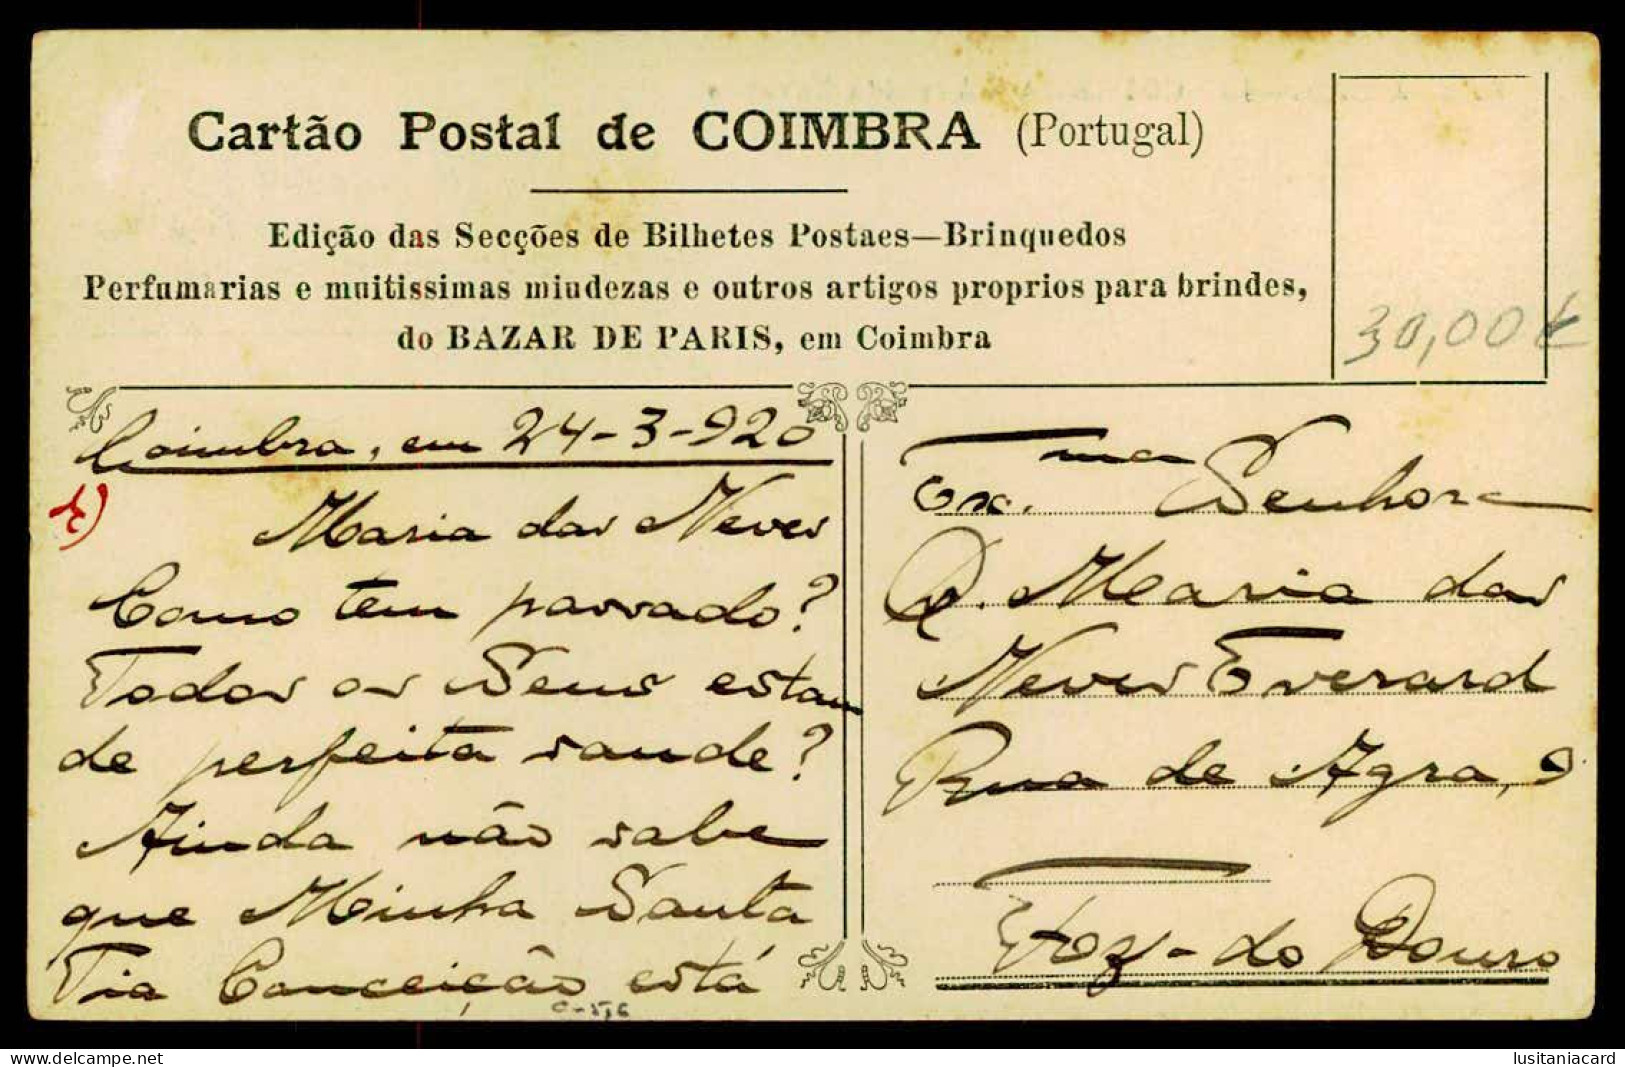 Cartão Postal de COIMBRA (Portugal)
Edição das Secções de Bilhetes Postaes—Brinquedos
Perfumarias e muitissimas miudezas e outros artigos proprios para brindes,
do BAZAR DE PARIS, em Coimbra
30,00€
Coimbra, em 24-3-920
Maria das Neves
Como tem passado?
Todos os Seus estam
de perfeita saude?
Ainda não sabe
que Minha Santa
Tia Conceição está
Ex.ma Senhora
D. Maria das
Neves Everard
Rua de Agra, 9
Foz-do Douro
delcampe.net
lusitaniacard